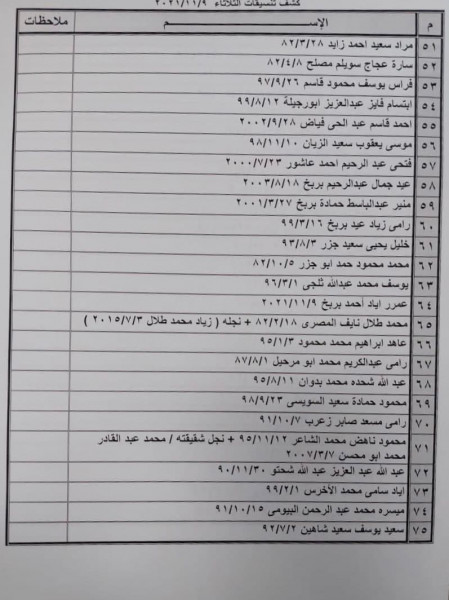 كشف تنسيقات الثلاثاء ٢٠٢١/١١/٩
م الإســـــم ملاحظات
٥١ مراد سعيد احمد زايد ٨٢/٣/٢٨
٥٢ سارة عجاج سويلم مصلح ٨٢/٤/٨
٥٣ فراس يوسف محمود قاسم ٩٧/٩/٢٦
٥٤ ابتسام فايز عبدالعزيز ابورجيلة ٩٩/٨/١٢
٥٥ احمد قاسم عبد الحى فياض ٢٠٠٢/٩/٢٨
٥٦ موسى يعقوب سعيد الزيان ٩٨/١١/١٠
٥٧ فتحى عبد الرحيم احمد عاشور ٢٠٠٠/٧/٢٣
٥٨ عيد جمال عبدالرحيم بريخ ٢٠٠٣/٨/١٨
٥٩ منير عبدالباسط حمادة بريخ ٢٠٠١/٣/٢٧
٦٠ رامى زياد عيد بريخ ٩٩/٣/١٦
٦١ خليل يحيى سعيد جزر ٩٣/٨/٣
٦٢ محمد محمود حمد أبو جزر ٨٢/١٠/٥
٦٣ يوسف محمد عبدالله ثلجى ٩٦/٣/١
٦٤ عمرر اياد أحمد بريخ ٢٠٢١/١١/٩
٦٥ محمد طلال نايف المصرى ٨٢/٢/١٨ + نجله ( زياد محمد طلال ٢٠١٥/٧/٣ )
٦٦ عاهد ابراهيم محمد محمود ٩٥/١/٣
٦٧ رامى عبدالكريم محمد ابو مرحيل ٨٧/٨/١
٦٨ عبد الله شحده محمد بدوان ٩٥/٨/١١
٦٩ محمود حمادة سعيد السويسى ٩٨/٩/٢٣
٧٠ رامى مسعد صابر زعرب ٩١/١٠/٧
٧١ محمود ناهض محمد الشاعر ٩٥/١١/١٢ + نجل شقيقته / محمد عبد القادر
محمد ابو محسن ٢٠٠٧/٣/٧
٧٢ عبد الله عبد العزيز عبد الله شحتو ٩٠/١١/٣٠
٧٣ اياد سامى محمد الأخرس ٩٩/٢/١
٧٤ ميسره محمد عبد الرحمن البيومى ٩١/١٠/١٥
٧٥ سعيد يوسف سعيد شاهين ٩٢/٧/٢